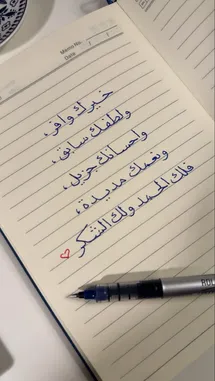 Memo No.
Date / /
خيرك وافر،
ولطفك سابق،
وإحسانك جزيل،
ونعمك مديدة،
فلك الحمد ولك الشكر